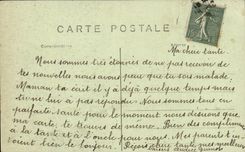 CARTE POSTALE
Correspondance
Ma chère tante.
Nous sommes très étonnés de ne pas recevoir de
tes nouvelles nous avons peur que tu sois malade.
Maman t'a écrit il y a déjà quelque temps mais
tu ne lui a pas répondu. Nous sommes tous en
parfaite santé pour le moment nous désirons que
ma carte, te trouve de même. Bien des compliments
à la tante et à l'oncle pour nous. Mes parents t'en-
voient bien le bonjour. Reçois chère tante mes meilleurs